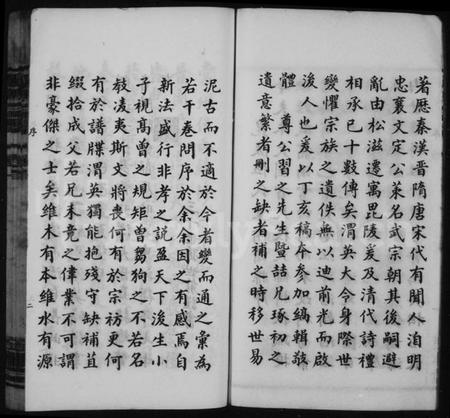 著歷秦漢晉隋唐宋代有聞人洎明
忠襄文定公萊名武宗朝其後嗣避
亂由松滋遷寓毘陵爰及清代詩禮
相承已十數傳矣渭英大令身際世
變懼宗族之遺佚無以迪前光而啟
後人也爰以丁亥稿本參加編輯敬
體 尊公習之先生暨喆兄琢初之
遺意繁者刪之缺者補之時移世易
泥古而不適於今者變而通之彙為
若干卷問序於余余因之有感焉自
新法盛行非孝之說盈天下後生小
子視高曾之規矩曾芻狗之不若名
教凌夷斯文將喪何有於宗祊更何
有於譜牒渭英獨能抱殘守缺補苴
綴拾成父若兄未竟之偉業不可謂
非豪傑之士矣維木有本維水有源
序
二